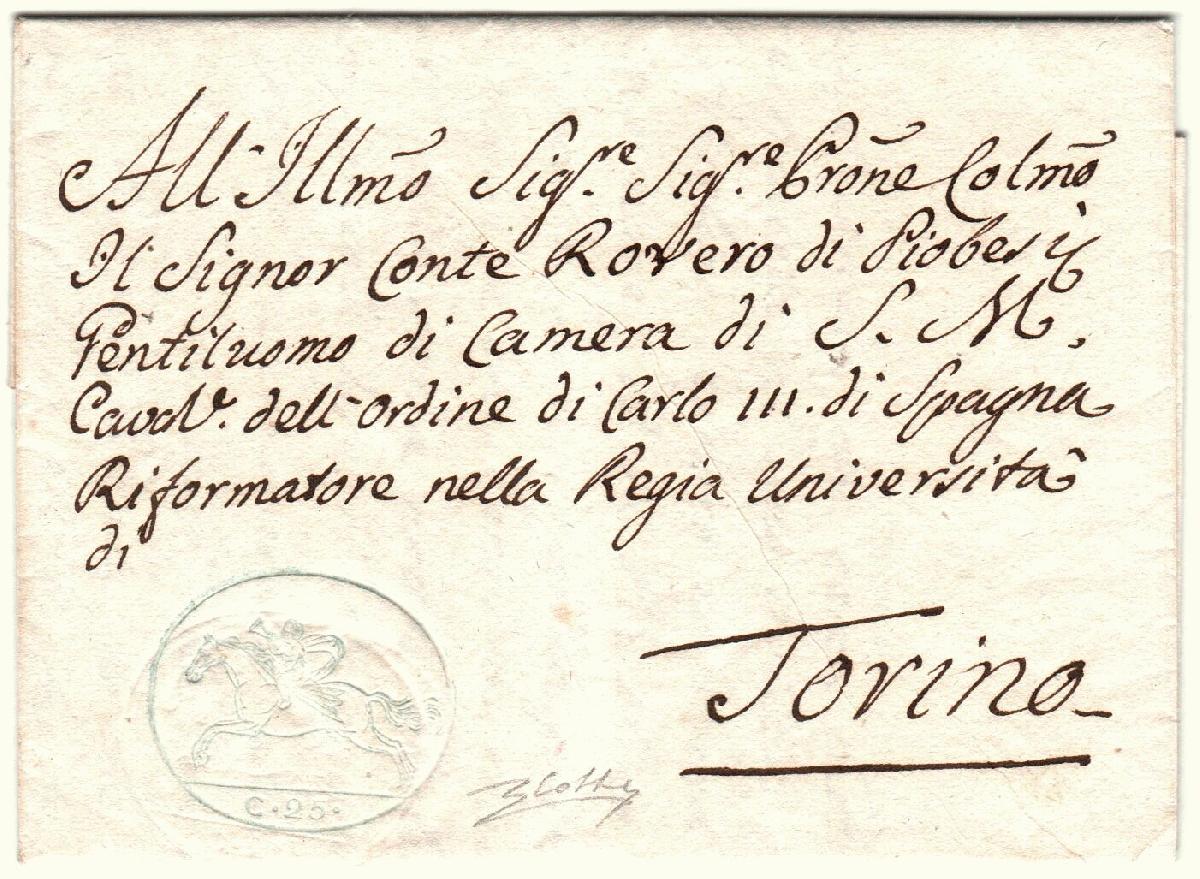 All'Illmõ Sigr.e Sigr.e Prõne Colmõ
Il Signor Conte Rovero di Piobesi
Gentiluomo di Camera di S. M.
Cavalr. dell'Ordine di Carlo III. di Spagna
Riformatore nella Regia Università
di
Torino
C. 25.